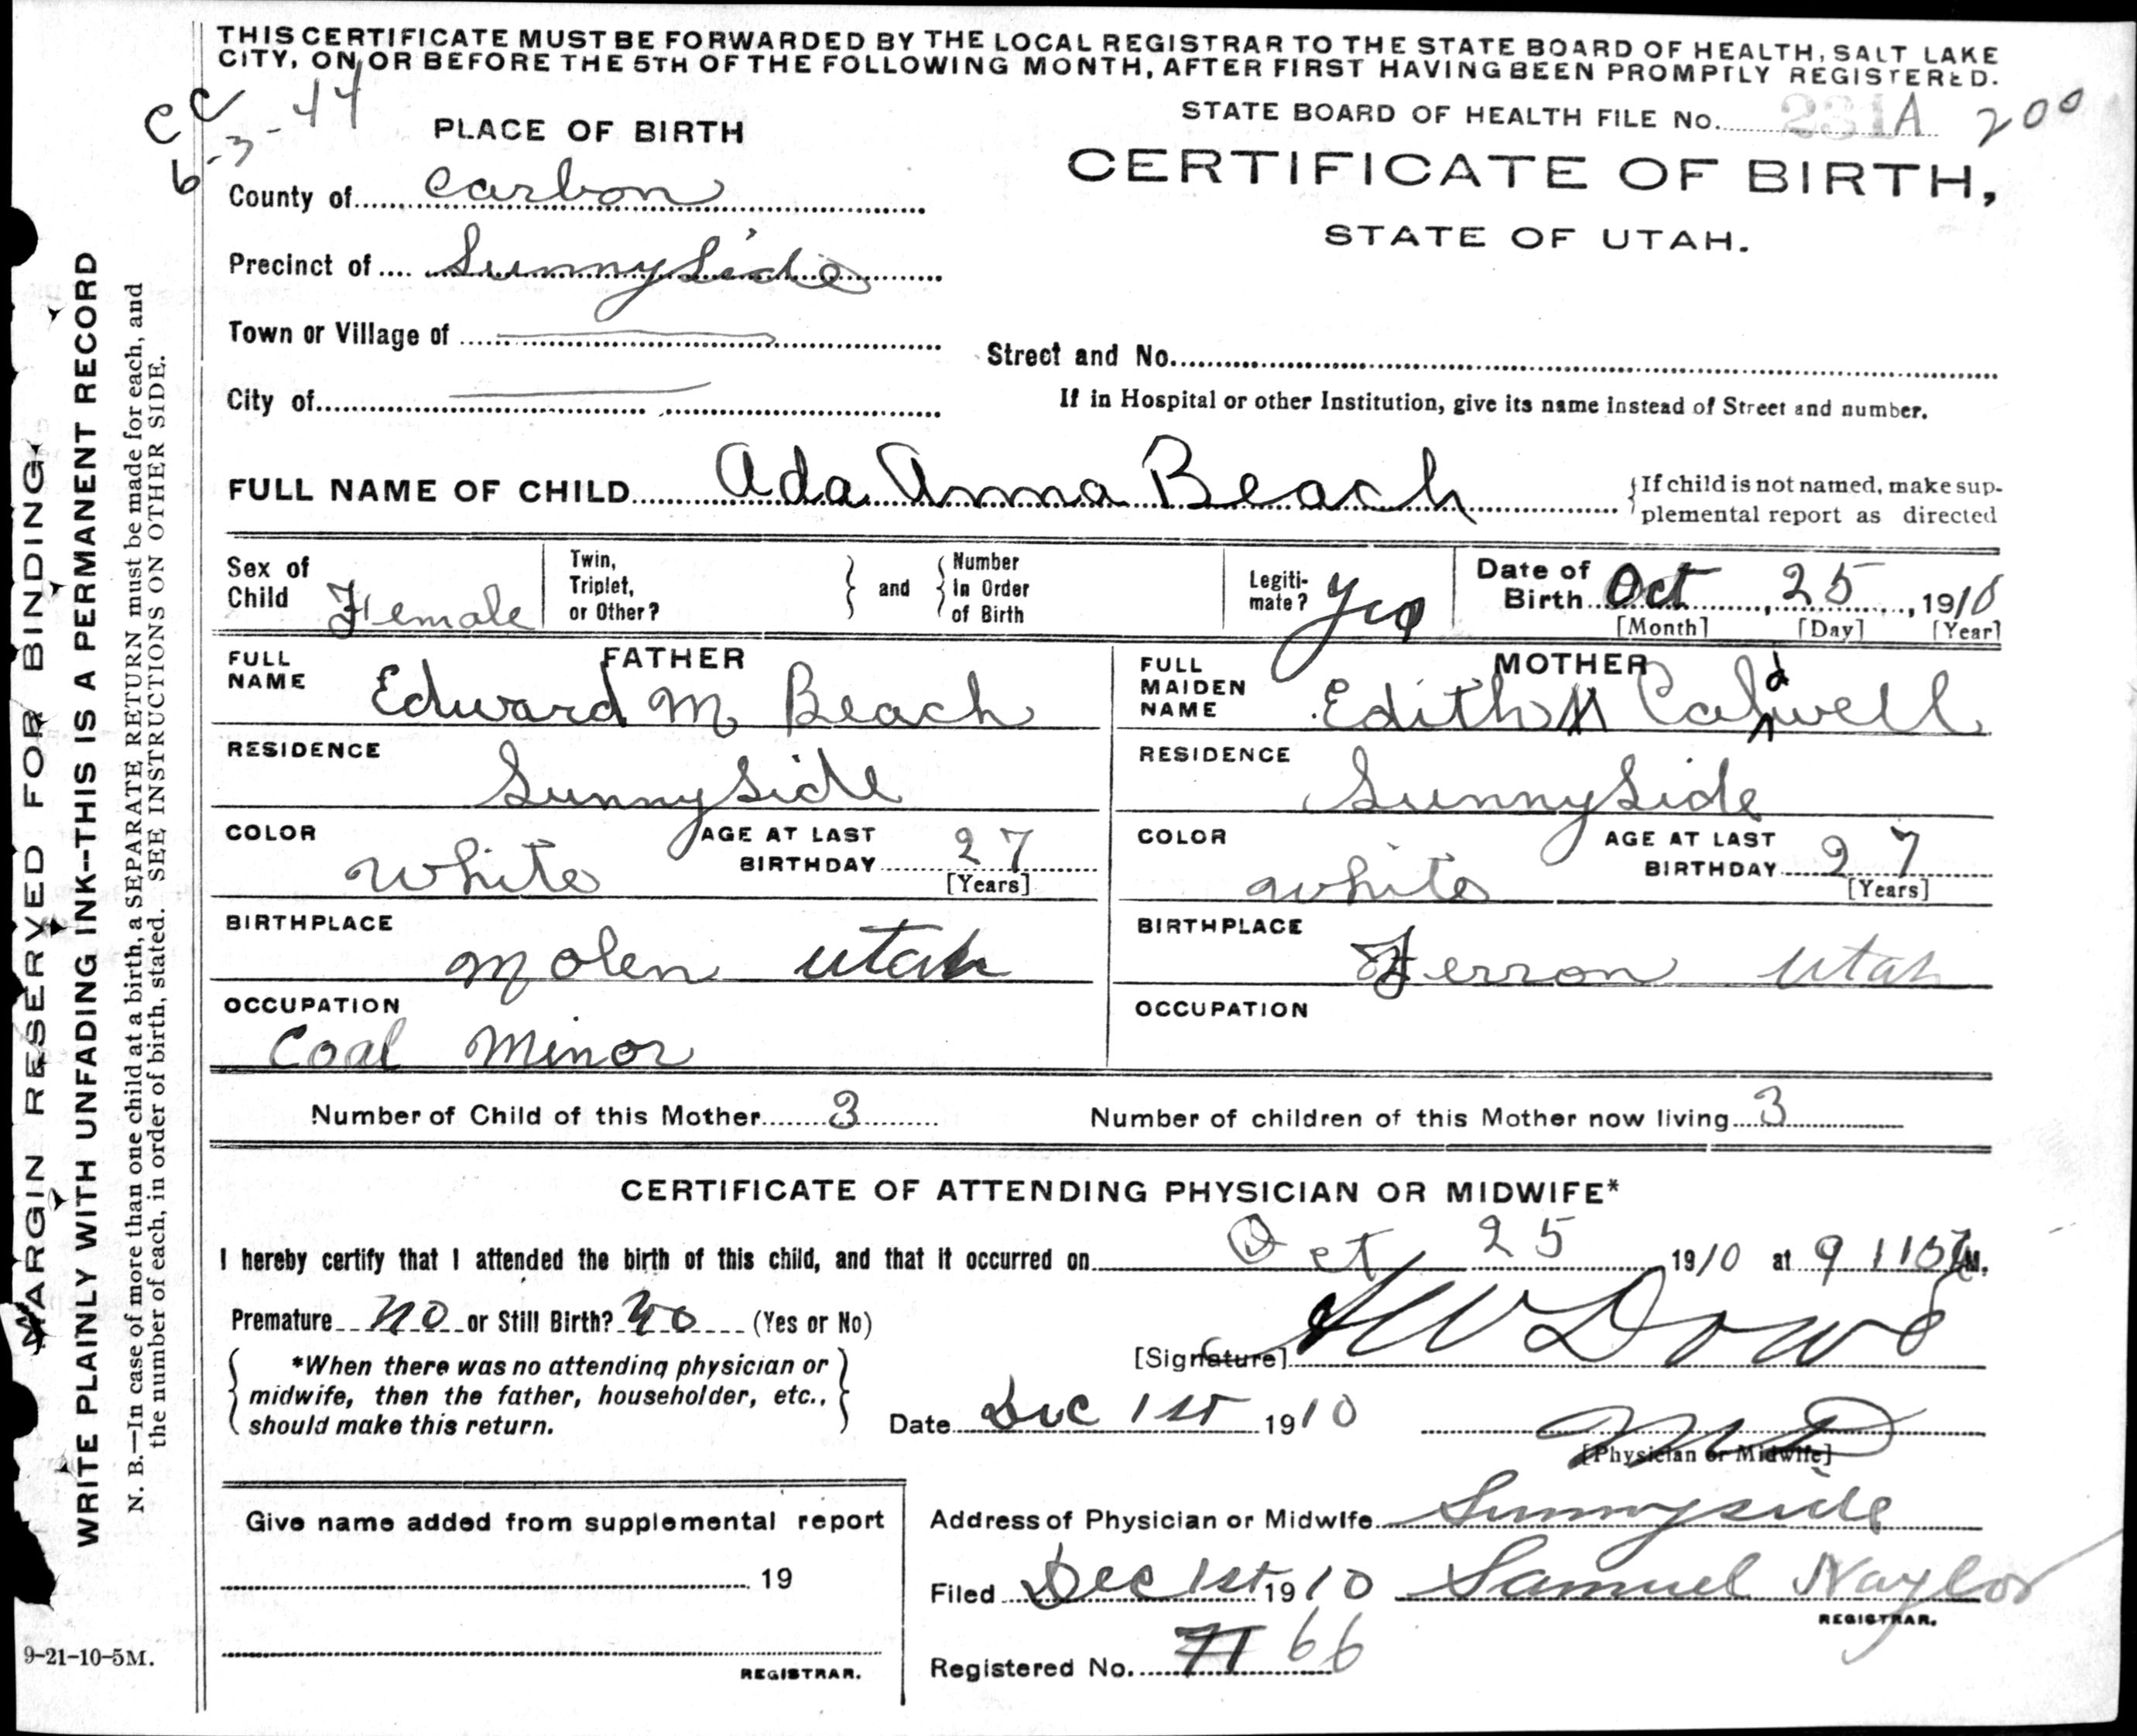 THIS CERTIFICATE MUST BE FORWARDED BY THE LOCAL REGISTRAR TO THE STATE BOARD OF HEALTH, SALT LAKE
CITY, ON OR BEFORE THE 5TH OF THE FOLLOWING MONTH, AFTER FIRST HAVING BEEN PROMPTLY REGISTERED.
CC
6-3-44
STATE BOARD OF HEALTH FILE No. 231A 200
PLACE OF BIRTH
CERTIFICATE OF BIRTH,
STATE OF UTAH.
County of Carbon
Precinct of Sunnyside
Town or Village of
Street and No.
City of
If in Hospital or other Institution, give its name instead of Street and number.
FULL NAME OF CHILD Ada Anna Beach
{If child is not named, make sup-
plemental report as directed
Sex of Child Female
Twin, Triplet, or Other? } and { Number In Order of Birth
Legiti-mate? Yes
Date of Birth Oct, 25, 1910
[Month] [Day] [Year]
FATHER
FULL NAME Edward M Beach
RESIDENCE Sunnyside
COLOR white
AGE AT LAST BIRTHDAY 27
[Years]
BIRTHPLACE Molen Utah
OCCUPATION
Coal Minor
MOTHER
FULL MAIDEN NAME Edith Caldwell
RESIDENCE Sunnyside
COLOR white
AGE AT LAST BIRTHDAY 27
[Years]
BIRTHPLACE Ferron Utah
OCCUPATION
Number of Child of this Mother 3
Number of children of this Mother now living 3
CERTIFICATE OF ATTENDING PHYSICIAN OR MIDWIFE*
I hereby certify that I attended the birth of this child, and that it occurred on Oct 25 1910 at 9 M.
Premature no or Still Birth? no (Yes or No)
*When there was no attending physician or
midwife, then the father, householder, etc.,
should make this return.
[Signature] W Dowd
Date Dec 1st 1910
MD
[Physician or Midwife]
Address of Physician or Midwife Sunnyside
Filed Dec 1st 1910 Samuel Naylor
REGISTRAR.
Registered No. 71 66
Give name added from supplemental report
19
REGISTRAR.
MARGIN RESERVED FOR BINDING.
WRITE PLAINLY WITH UNFADING INK--THIS IS A PERMANENT RECORD
N. B.—In case of more than one child at a birth, a SEPARATE RETURN must be made for each, and
the number of each, in order of birth, stated. SEE INSTRUCTIONS ON OTHER SIDE.
9-21-10-5M.